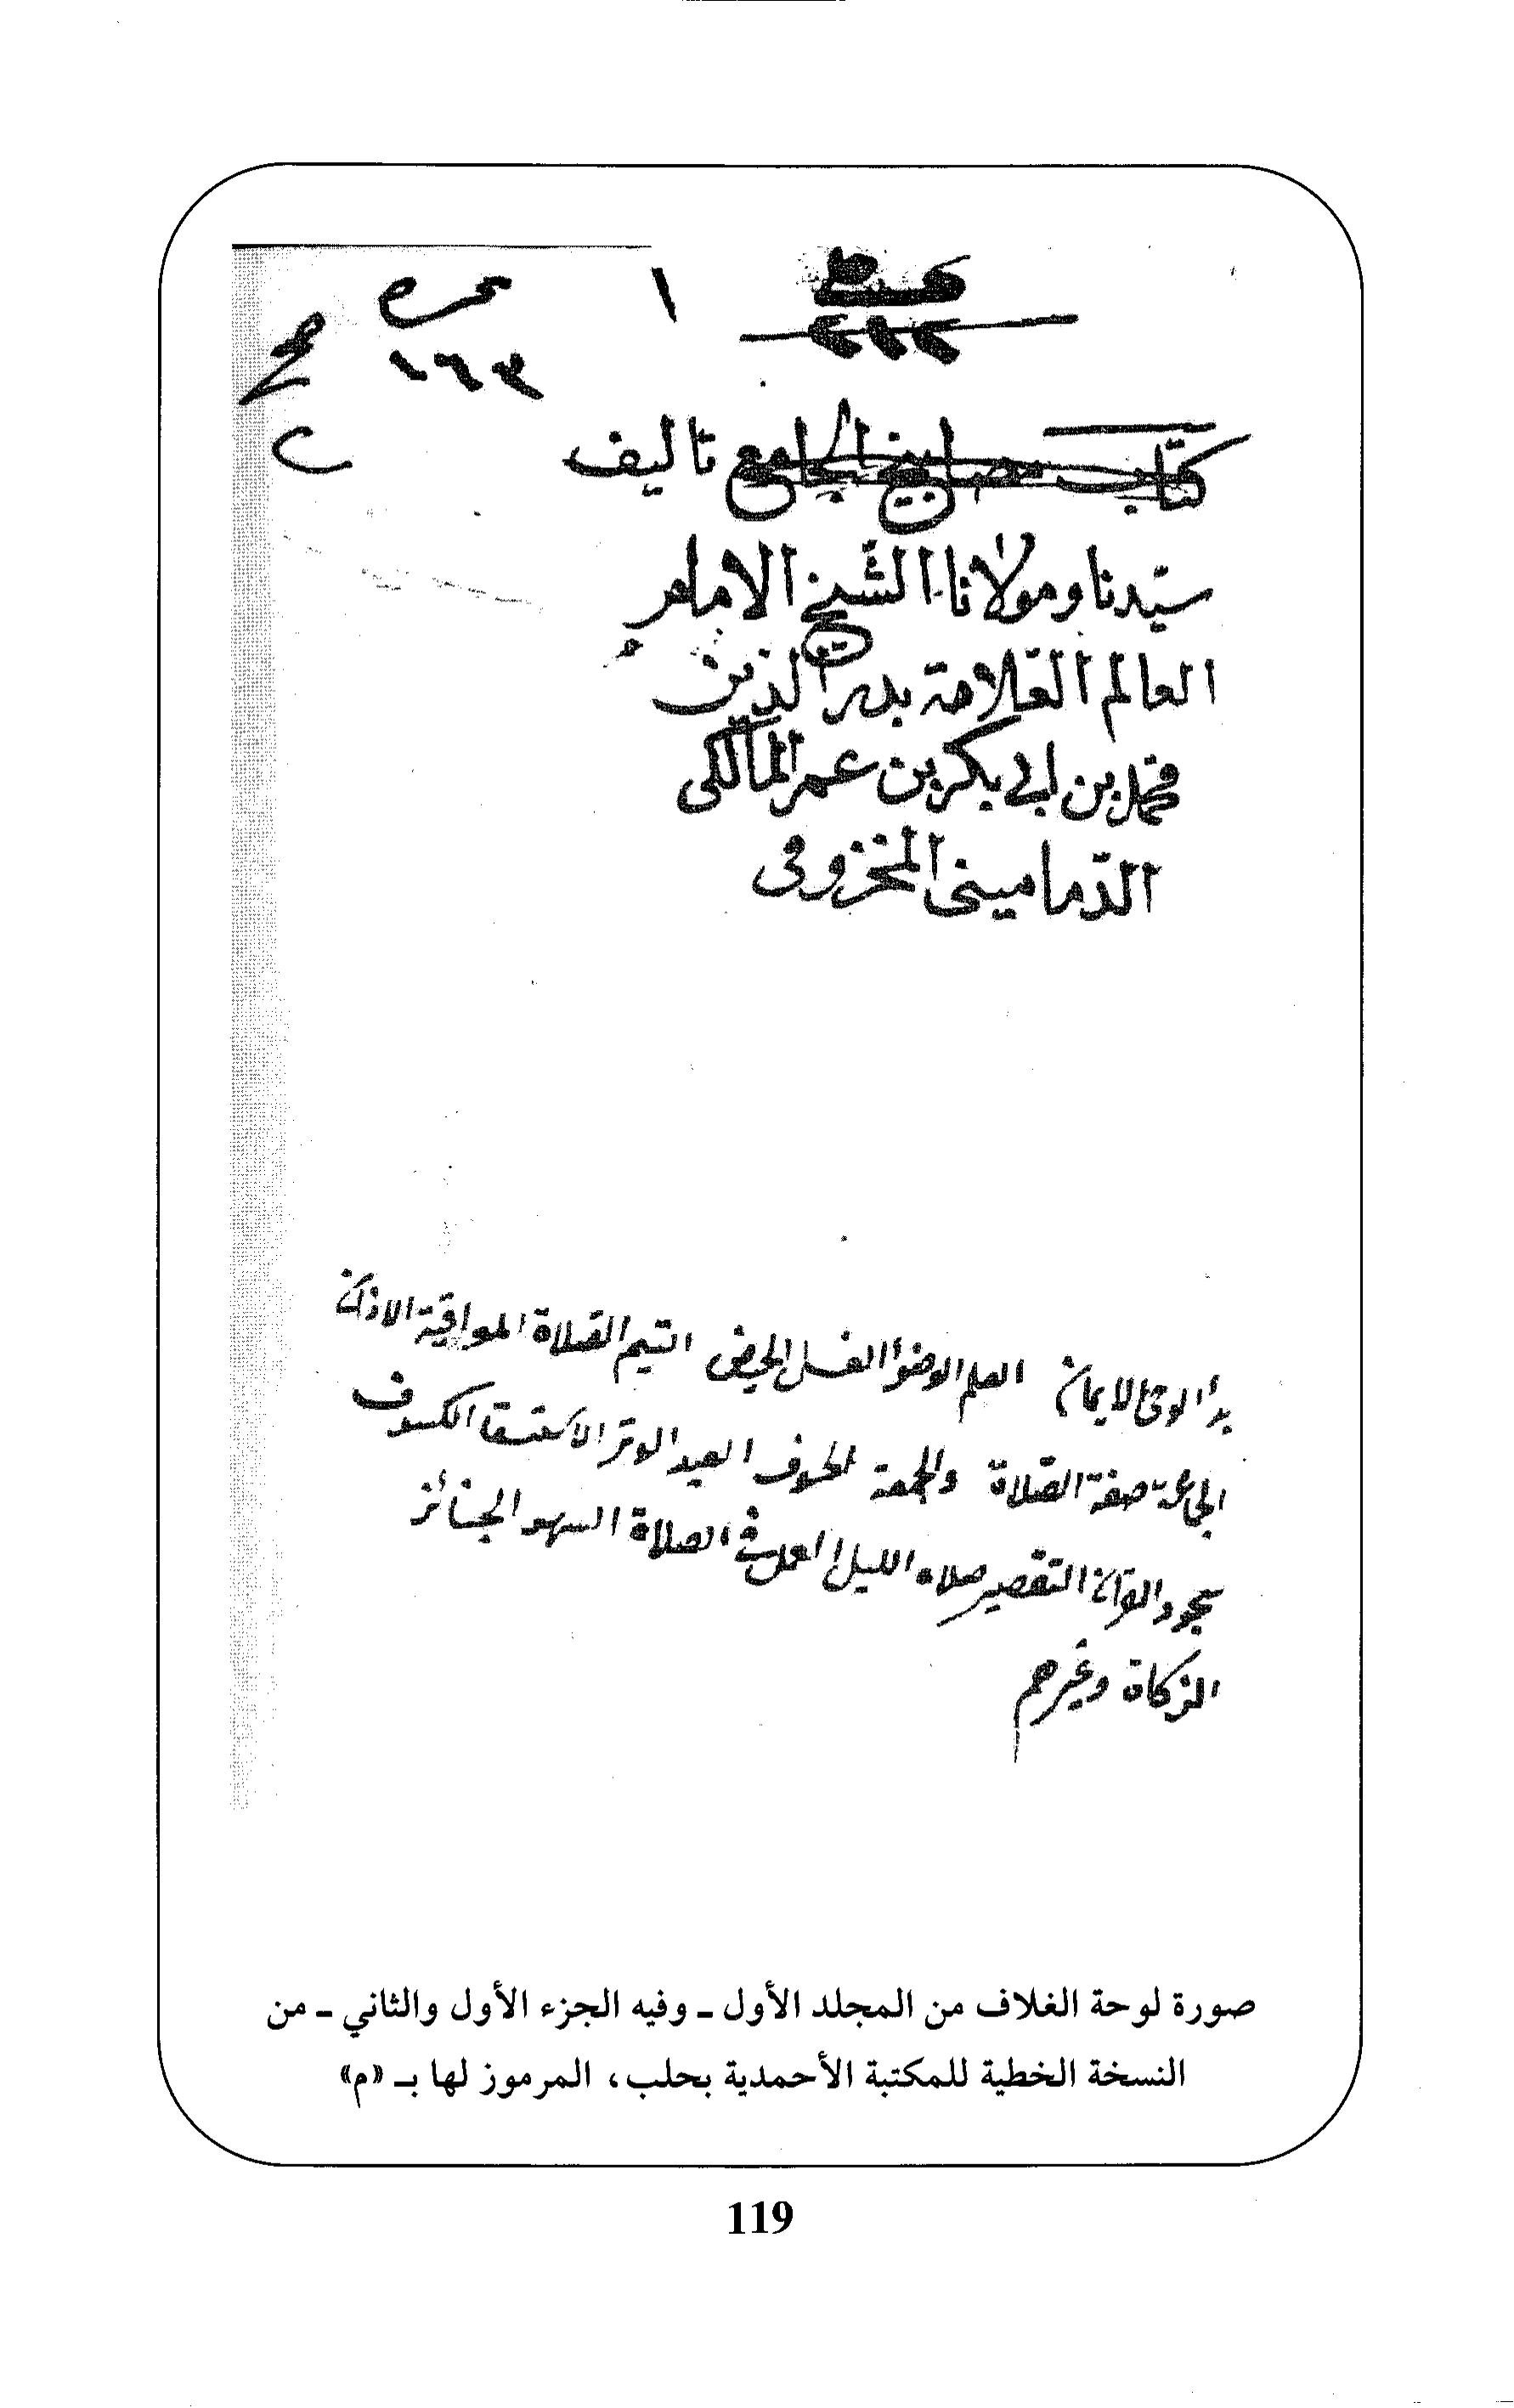 ١
نمره
١٦٣
كتاب مصابيح الجامع تاليف
سيّدنا ومولانا الشّيخ الامام
العالم العّلامة بدر الدّين
محمّد بن ابي بكر بن عمر المالكى
الدّمامينى المخزومى
بدأ الوحى الايمان العلم الوضوأ الغسل الحيض التيم الصّلاة المواقيت الاذان
الجماعة صفة الصّلاة والجمعة الخوف العيد الوتر الاستسقا الكسوف
سجود القرآن التقصير صلاه الليل العمل في الصلاة السهو الجنائز
الزكاة وغيرهم
صورة لوحة الغلاف من المجلد الأول ـ وفيه الجزء الأول والثاني ـ من
النسخة الخطية للمكتبة الأحمدية بحلب، المرموز لها بـ «م»
119